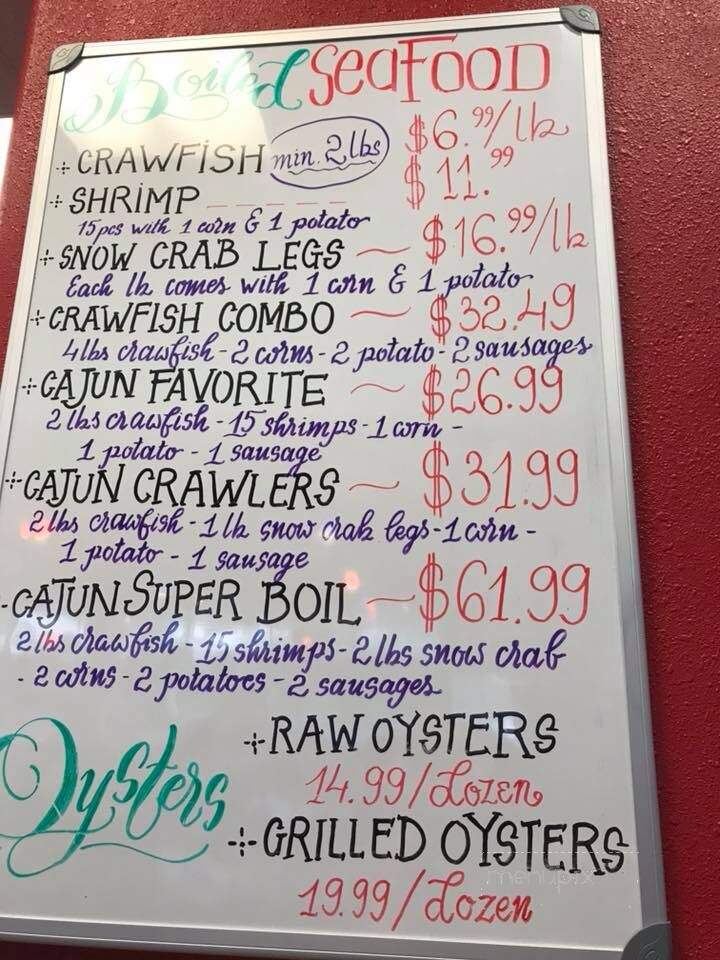 Boiled SEAFOOD
CRAWFISH min. 2 lbs $6.99/lb
SHRIMP $11.99
15pcs with 1 corn & 1 potato
SNOW CRAB LEGS ~ $16.99/lb
Each lb comes with 1 corn & 1 potato
CRAWFISH COMBO ~ $32.49
4lbs crawfish - 2 corns - 2 potato - 2 sausages
CAJUN FAVORITE ~ $26.99
2 lbs crawfish - 15 shrimps - 1 corn -
1 potato - 1 sausage
CAJUN CRAWLERS ~ $31.99
2 lbs crawfish - 1 lb snow crab legs - 1 corn -
1 potato - 1 sausage
CAJUN SUPER BOIL ~ $61.99
2 lbs crawfish - 15 shrimps - 2 lbs snow crab
- 2 corns - 2 potatoes - 2 sausages
Oysters
RAW OYSTERS
14.99/Dozen
GRILLED OYSTERS
menupix
19.99/Dozen